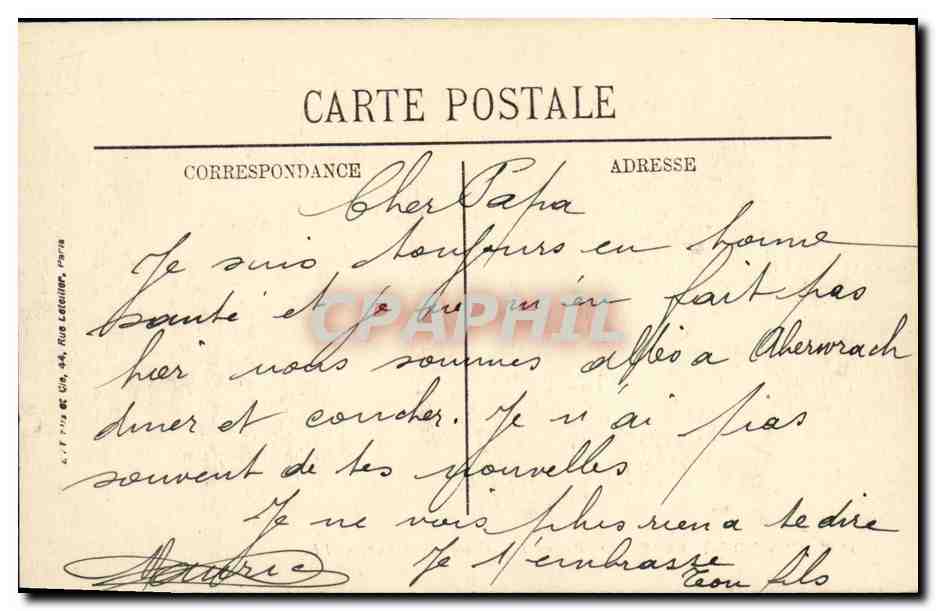 CARTE POSTALE
CORRESPONDANCE
ADRESSE
Cher Papa
Je suis toujours en bonne
santé et je ne m'en fait pas
hier nous sommes allés a Aberwrach
diner et coucher. Je n'ai pas
souvent de tes nouvelles
Je ne vois plus rien a te dire
Je t'embrasse
Ton fils
Maurice
44, Rue Letellier, Paris
CPAPHIL